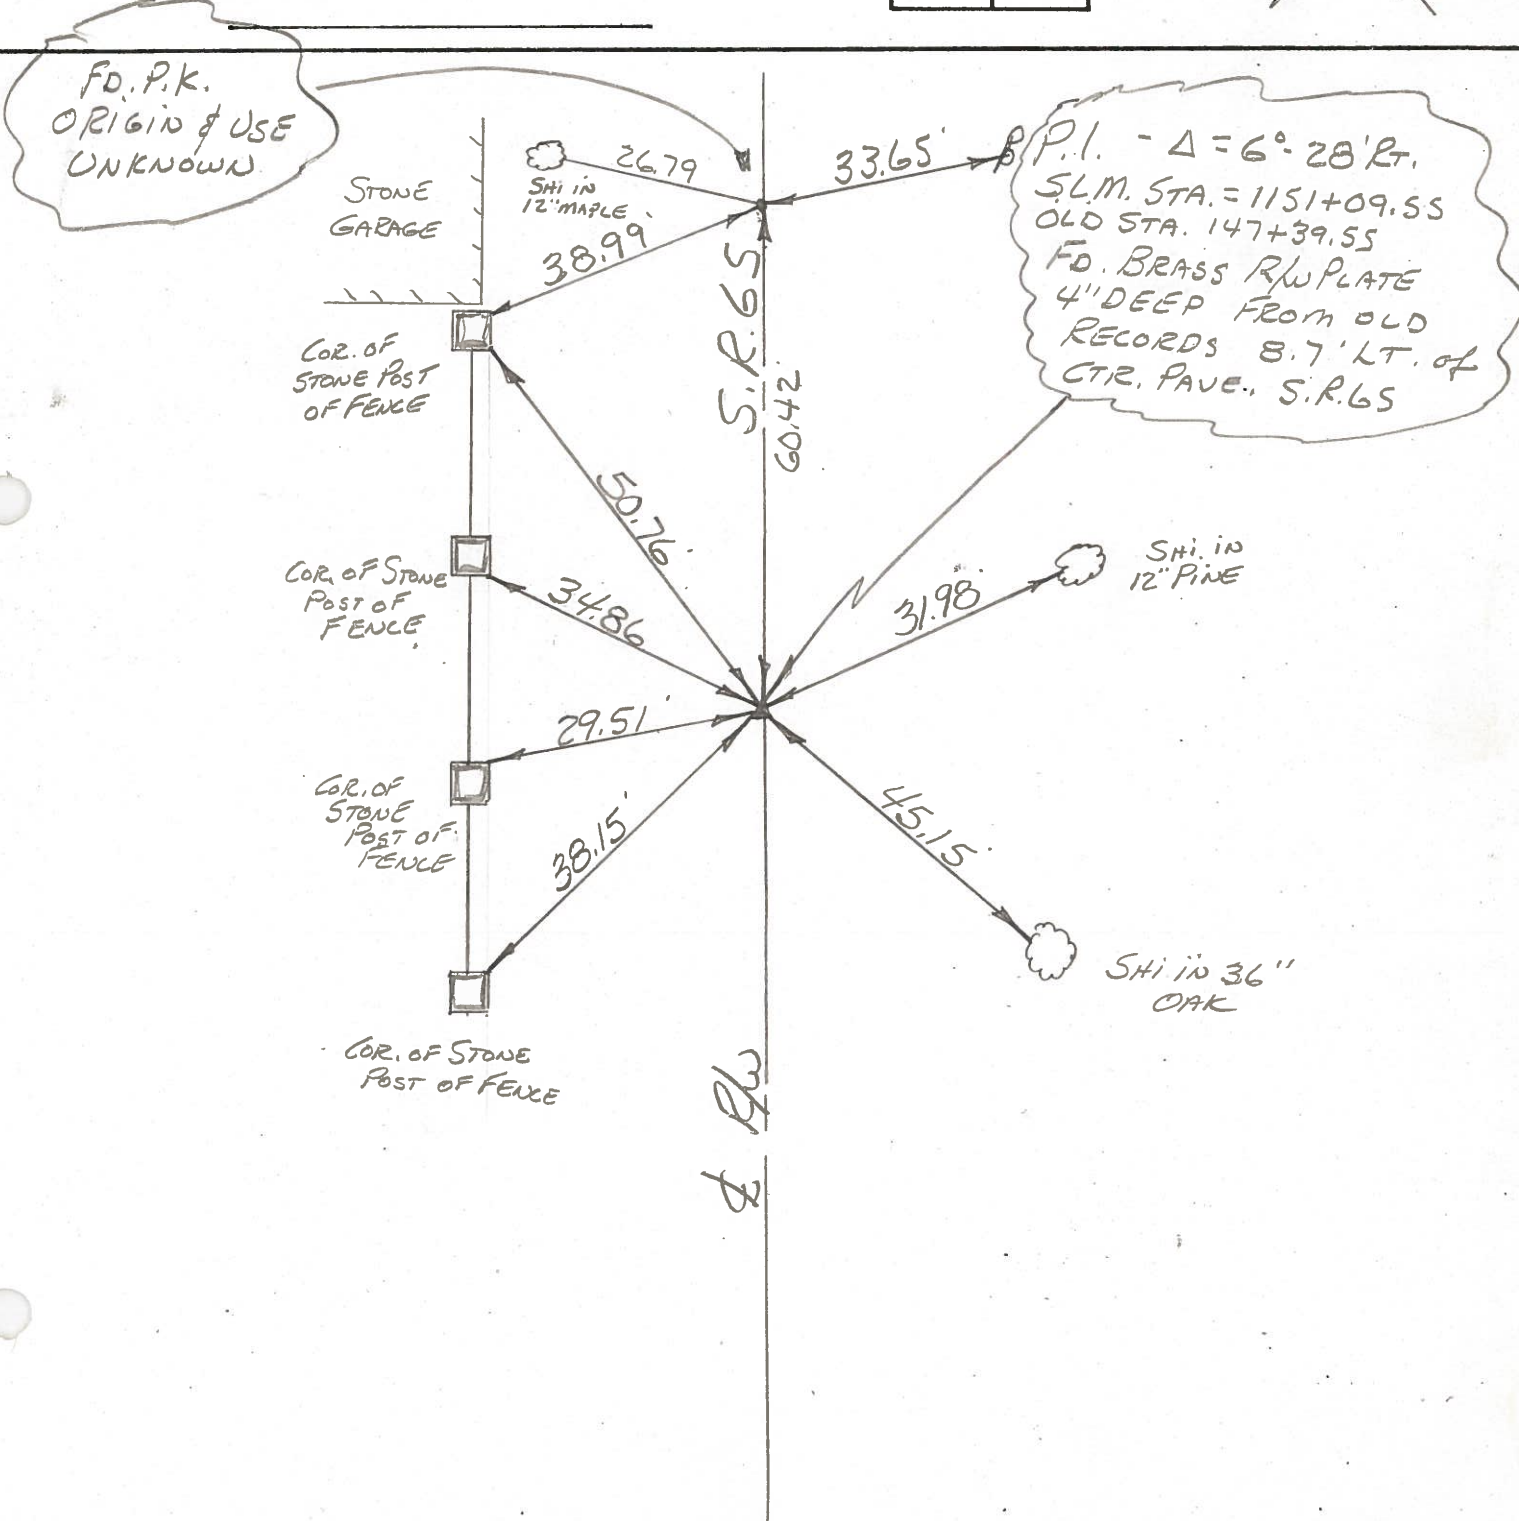 FD. P.K.
ORIGIN & USE
UNKNOWN
STONE
GARAGE
SHI IN
12" MAPLE
26.79
33.65'
38.99'
P.I. - Δ = 6°-28' RT.
S.L.M. STA. = 1151+09.55
OLD STA. 147+39.55
FD. BRASS R/W PLATE
4" DEEP FROM OLD
RECORDS 8.7' LT. of
CTR. PAVE., S.R.65
S.R.65
60.42'
COR. OF
STONE POST
OF FENCE
50.76'
COR. OF STONE
POST OF
FENCE
34.86
31.98'
SHI. IN
12" PINE
29.51'
COR. OF
STONE
POST OF
FENCE
38.15'
45.15'
SHI IN 36"
OAK
COR. OF STONE
POST OF FENCE
℄ R/W